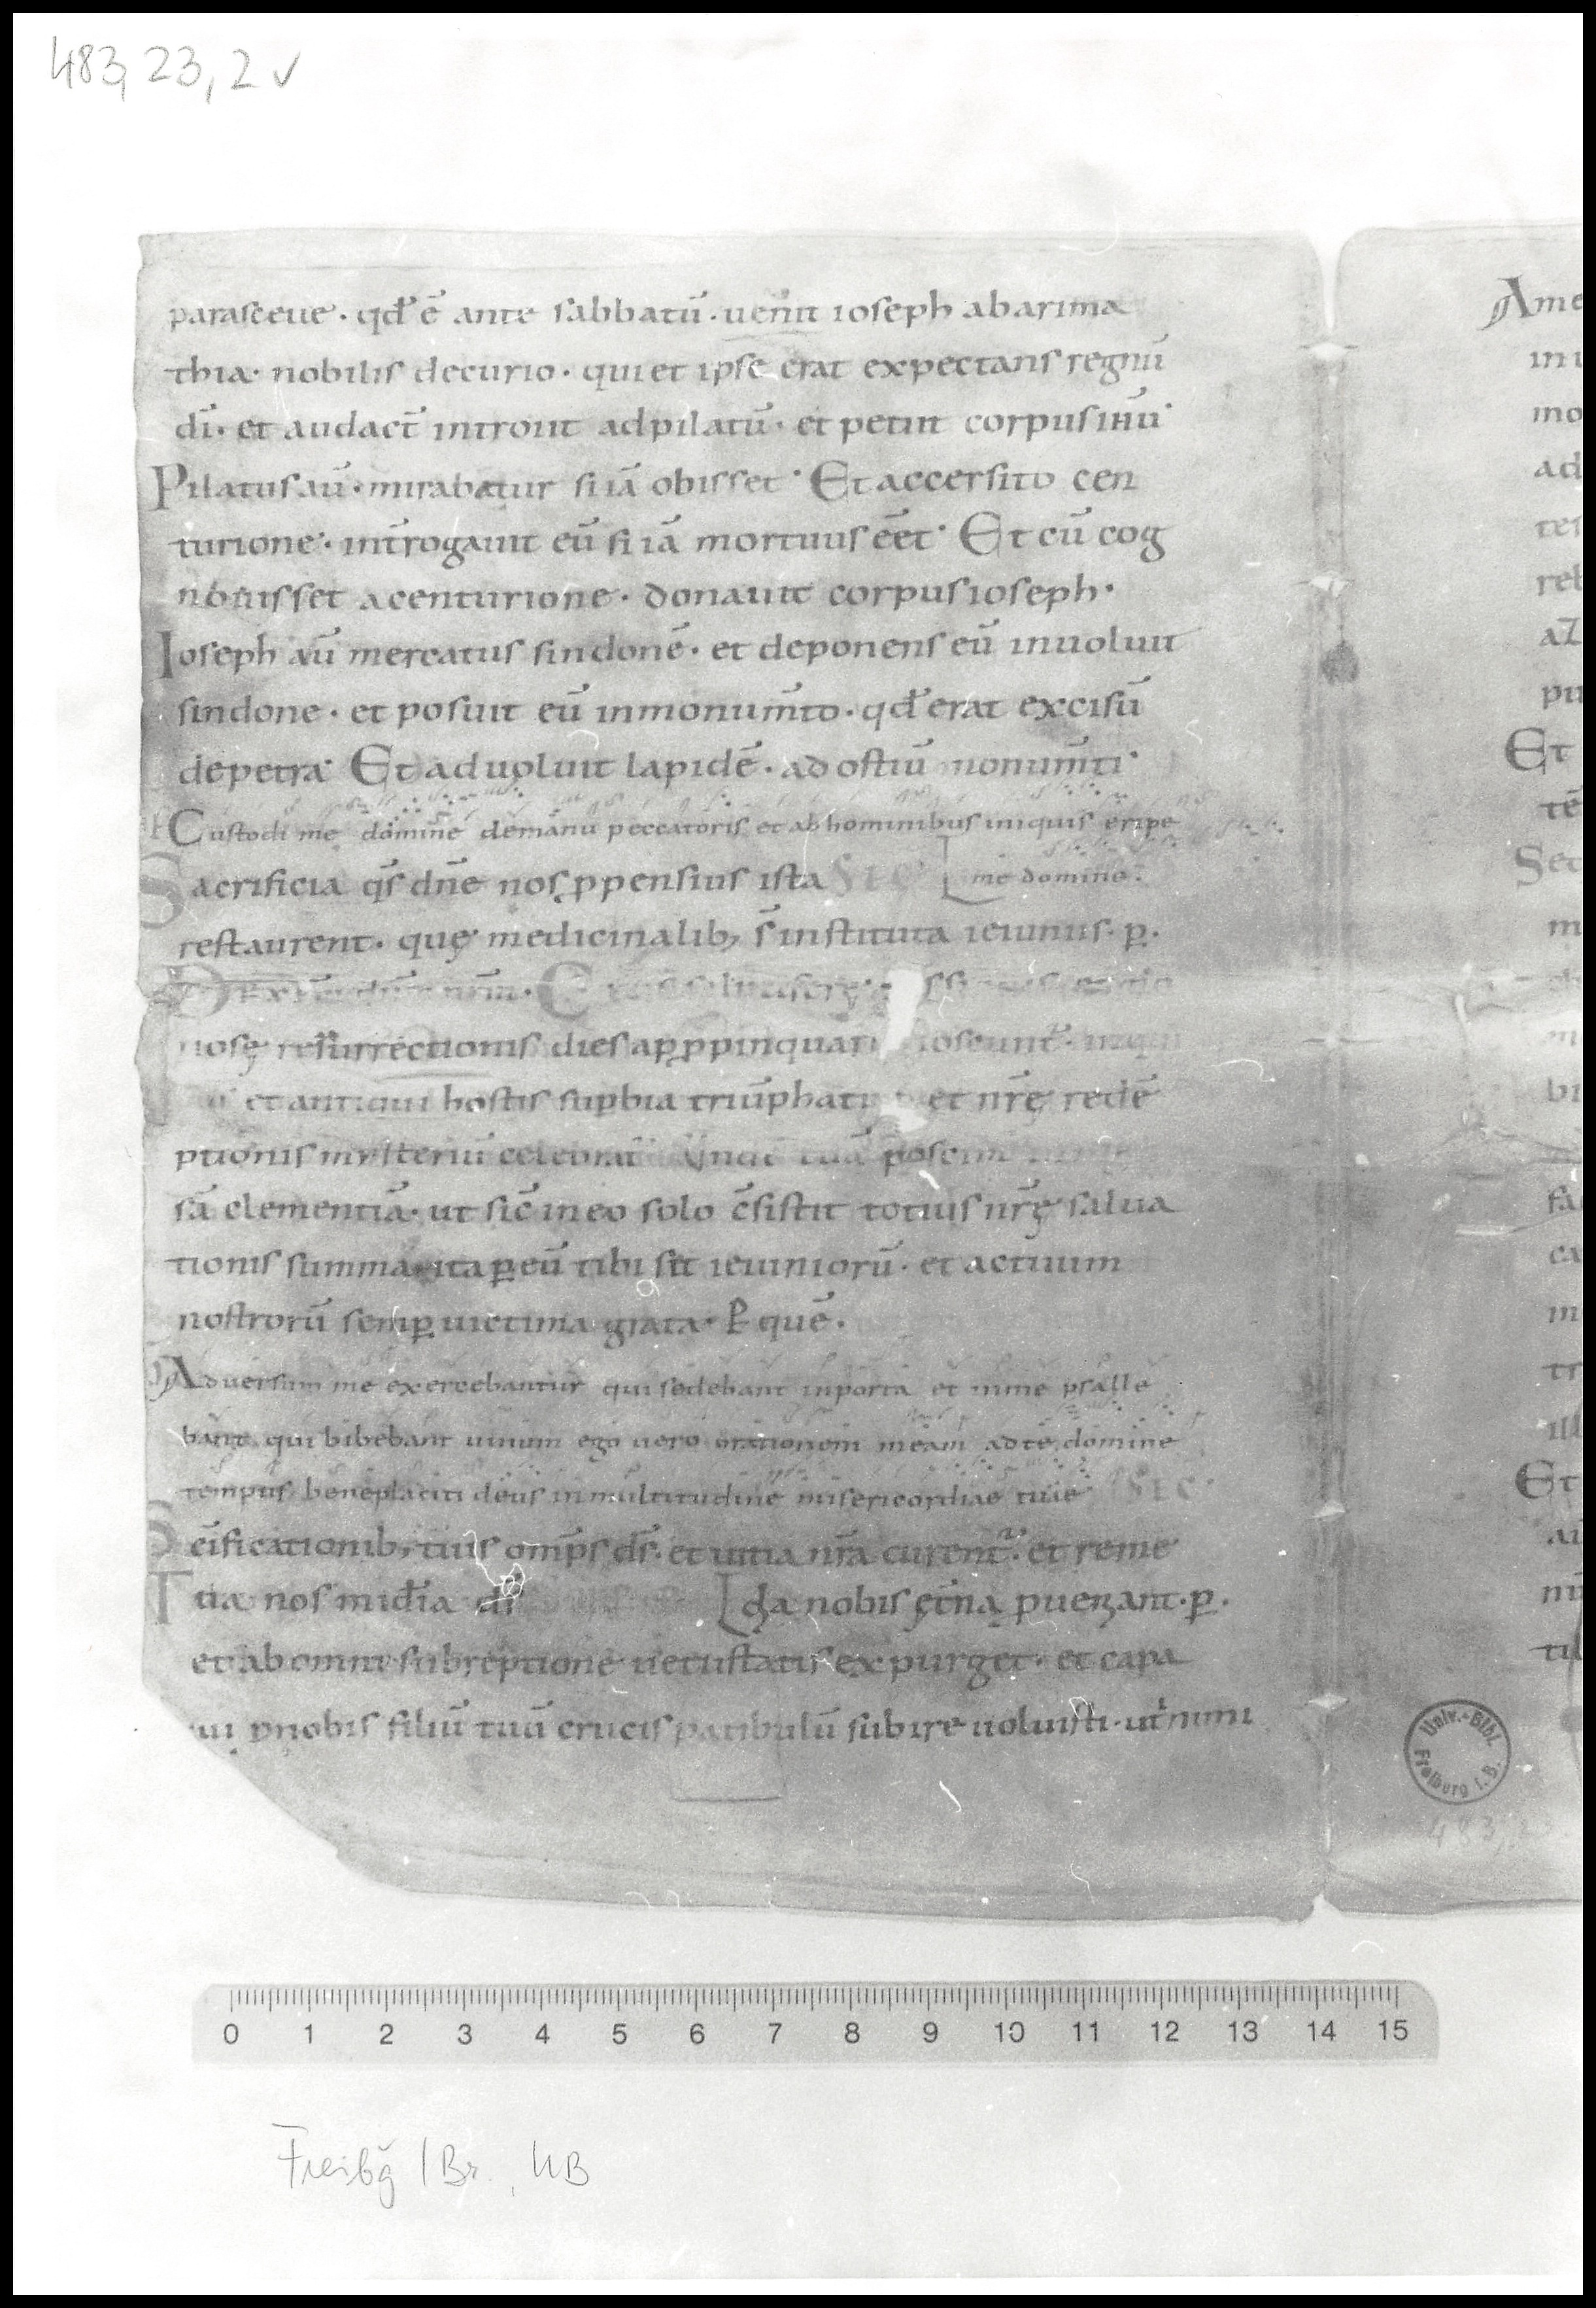 483, 23, 2 v
parasceue · qd̄ ē ante sabbatū · uenit ioseph abarima
thia · nobilis decurio · qui et ipse erat expectans regnū
dī · et audact̄ introiit adpilatū · et petiit corpus ihū ·
Pilatus aū · mirabatur si iā obisset · Et accersito cen
turione · int̄rogauit eū si iā mortuus eēt · Et cū cog
nouisset acenturione · donauit corpus ioseph ·
Ioseph aū mercatus sindonē · et deponens eū inuoluit
sindone · et posuit eū inmonum̄to · qd̄ erat excisū
depetra · Et aduoluit lapidē · ad ostiū monum̄ti ·
Custodi me domine demanu peccatoris et ab hominibus iniquis eripe
me domine.
Sacrificia qs̄ dn̄e nos ꝓpensius ista
restaurent · quę medicinalib; s̄ instituta ieiuniis · ꝑ ·
nosę resurrectionis dies apꝓpinquare noscunt̄ ·
et antiqui hostis suꝑbia triūphat et nr̄ę redē
ptionis mysteriū celebrat̄ tuā
sā clementiā · ut sic̄ in eo solo c̄sistit totius nr̄ę salua
tionis summa · ita ꝑ eū tibi sit ieiuniorū · et actuum
nostrorū semꝑ uictima grata · P quē ·
Aduersum me exercebantur qui sedebant inporta et inme psalle
bant qui bibebant uinum ego uero orationem meam ad te domine
tempus beneplaciti deus inmultitudine misericordiae tuae SEC
Sc̄ificationib; tuis omp̄s ds̄ · et uitia nr̄a curent̄ · et reme
dia nobis ęt̄na ꝓueniant · ꝑ ·
Tua nos mic̄dia ds̄
et ab omni subreptione uetustatis expurget · et capa
Qui ꝓ nobis filiū tuū crucis patibulū subire uoluisti · ut inimi
Ame
in
mo
ad
reb
pu
Et
tē
Sec
m
bi
fa
ca
m
tr
ill
Et
au
tu
Univ.-Bibl.
Freiburg i. B.
483,
0 1 2 3 4 5 6 7 8 9 10 11 12 13 14 15
Freibg / Br., UB